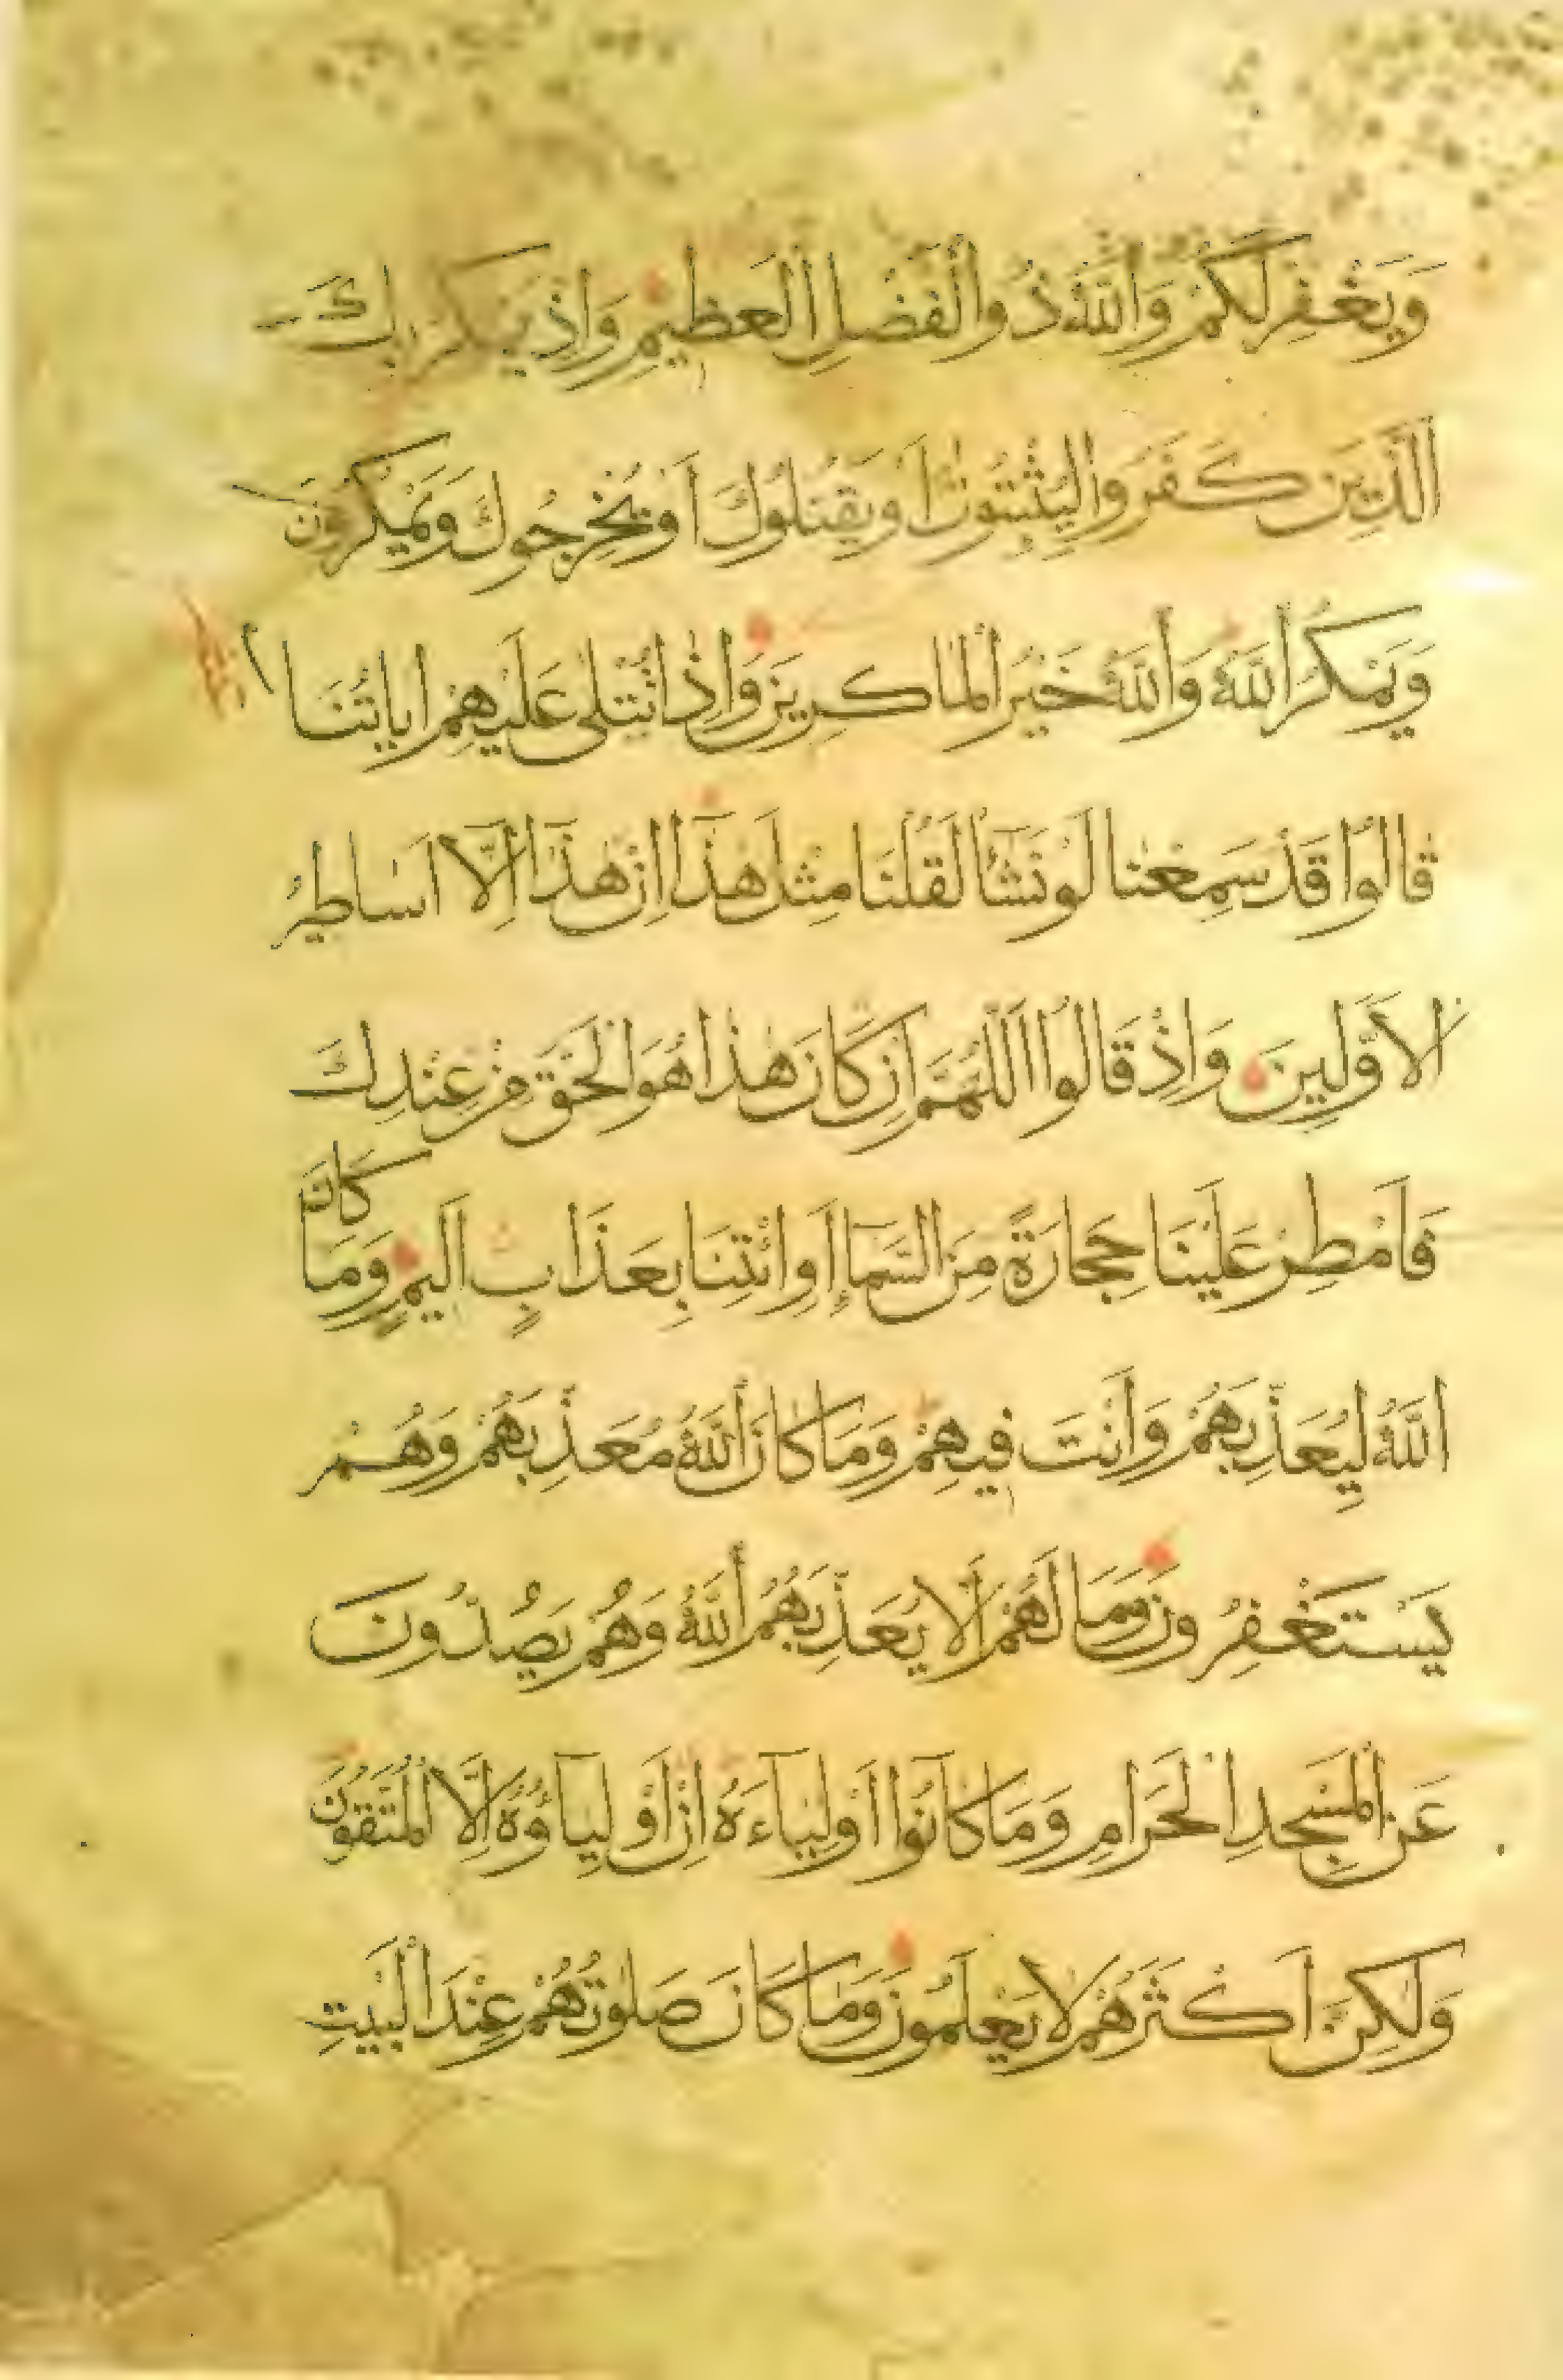 وَيَغْفِرْ لَكُمْ وَاللّٰهُ ذُو الْفَضْلِ الْعَظِيمِ وَاِذْ يَمْكُرُ بِكَ
الَّذِينَ كَفَرُوا لِيُثْبِتُوكَ اَوْ يَقْتُلُوكَ اَوْ يُخْرِجُوكَ وَيَمْكُرُونَ
وَيَمْكُرُ اللّٰهُ وَاللّٰهُ خَيْرُ الْمَاكِرِينَ وَاِذَا تُتْلٰى عَلَيْهِمْ اٰيَاتُنَا
قَالُوا قَدْ سَمِعْنَا لَوْ نَشَآءُ لَقُلْنَا مِثْلَ هٰذَا اِنْ هٰذَا اِلَّا اَسَاطِيرُ
الْاَوَّلِينَ وَاِذْ قَالُوا اللّٰهُمَّ اِنْ كَانَ هٰذَا هُوَ الْحَقَّ مِنْ عِنْدِكَ
فَاَمْطِرْ عَلَيْنَا حِجَارَةً مِنَ السَّمَآءِ اَوِ ائْتِنَا بِعَذَابٍ اَلِيمٍ وَمَا كَانَ
اللّٰهُ لِيُعَذِّبَهُمْ وَاَنْتَ فِيهِمْ وَمَا كَانَ اللّٰهُ مُعَذِّبَهُمْ وَهُمْ
يَسْتَغْفِرُونَ وَمَا لَهُمْ اَلَّا يُعَذِّبَهُمُ اللّٰهُ وَهُمْ يَصُدُّونَ
عَنِ الْمَسْجِدِ الْحَرَامِ وَمَا كَانُوا اَوْلِيَآءَهُ اِنْ اَوْلِيَآؤُهُ اِلَّا الْمُتَّقُونَ
وَلٰكِنَّ اَكْثَرَهُمْ لَا يَعْلَمُونَ وَمَا كَانَ صَلٰوتُهُمْ عِنْدَ الْبَيْتِ